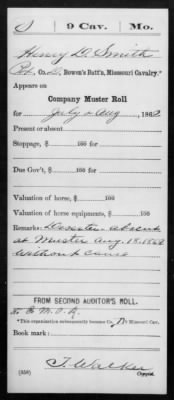 S | 9 Cav. | Mo.
Henry D. Smith
Pvt., Co. D, Bowen's Batt'n, Missouri Cavalry.*
Appears on
Company Muster Roll
for July & Aug, 1862
Present or absent
Stoppage, $ 100 for
Due Gov't, $ 100 for
Valuation of horse, $ 100
Valuation of horse equipments, $ 100
Remarks: Deserter absent
at Muster Aug. 18. 1862
without cause
FROM SECOND AUDITOR'S ROLL.
*This organization subsequently became Co. , 9 Missouri Cav.
Book mark:
T. Walker
(356) Copyist.